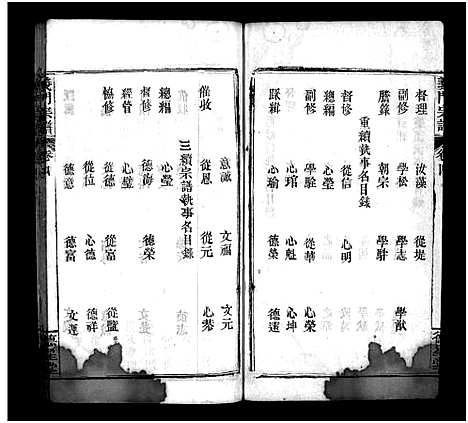 督理 汝藻 從堤
副修 學松 學志 學猷
謄錄 朝宗 學駢
重續執事名目錄
督修 從信 心明
總編 心瑩
副修 學駩 從華 心榮
踩訪 心琯 心魁 心坤
心瑜 德藻 德達
催收 意誠 從元 心菾
文福 文元
三續宗譜執事名目錄
總編 心瑩
督修 心璧 德榮
經管 從德 從富 從鑑
協修 從位 心德 德祥
德意 德富 文運
義門宗譜 卷四